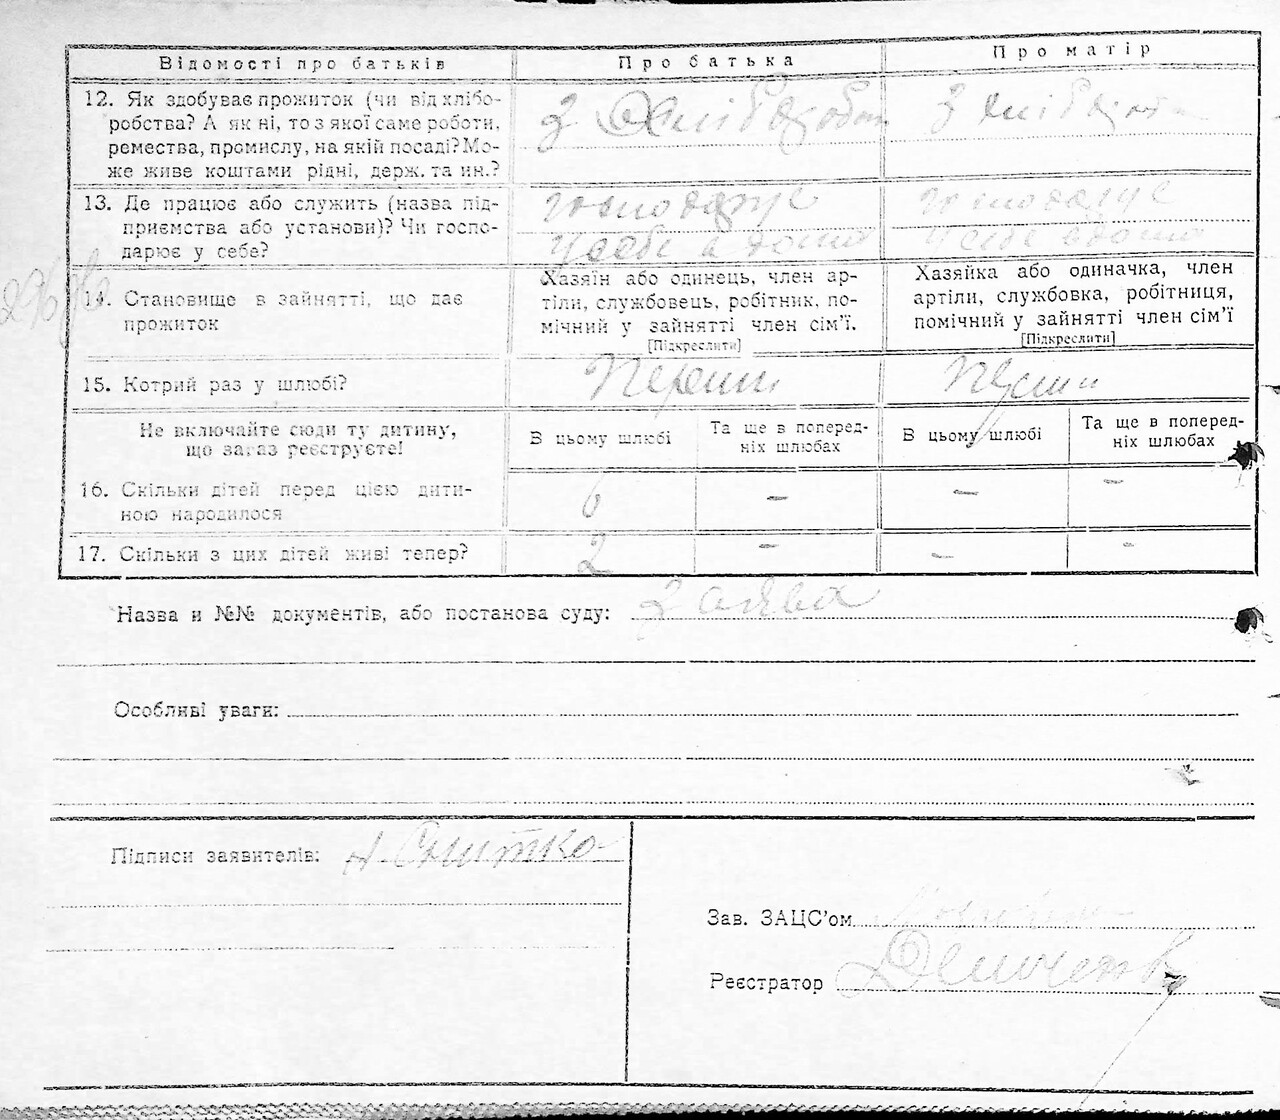 Відомості про батьків
Про батька
Про матір
12. Як здобуває прожиток (чи від хлібо-
робства? А як ні, то з якої саме роботи,
ремества, промислу, на якій посаді? Мо-
же живе коштами рідні, держ. та ин.?
З
З
13. Де працює або служить (назва під-
приємства або установи)? Чи госпо-
дарює у себе?
господарує
у себе в дома
господарує
у себе в дома
14. Становище в зайнятті, що дає
прожиток
Хазяїн або одинець, член ар-
тіли, службовець, робітник, по-
мічний у зайнятті член сім’ї.
[Підкреслити]
Хазяйка або одиначка, член
артіли, службовка, робітниця,
помічний у зайнятті член сім’ї
[Підкреслити]
15. Котрий раз у шлюбі?
Перший
Не включайте сюди ту дитину,
що зараз реєструєте!
В цьому шлюбі
Та ще в поперед-
ніх шлюбах
В цьому шлюбі
Та ще в поперед-
ніх шлюбах
16. Скільки дітей перед цією дити-
ною народилося
6 – – –
17. Скільки з цих дітей живі тепер?
2 – – –
Назва и №№ документів, або постанова суду: Заява
Особливі уваги:
Підписи заявителів: Снитко
Зав. ЗАЦС’ом
Реєстратор